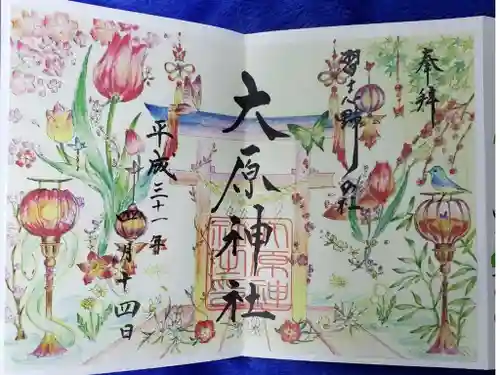 奉拝
習志野の社
大原神社
平成三十一年
四月十四日